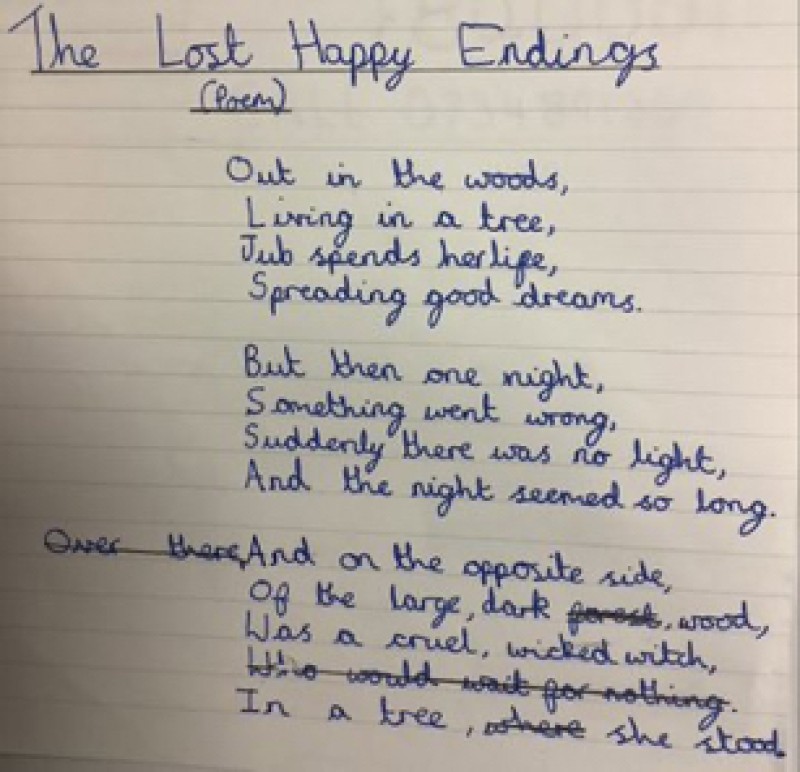 The Lost Happy Endings
(Poem)
Out in the woods,
Living in a tree,
Jub spends her life,
Spreading good dreams.
But then one night,
Something went wrong,
Suddenly there was no light,
And the night seemed so long.
Over there, And on the opposite side,
Of the large, dark forest, wood,
Was a cruel, wicked witch,
Who would wait for nothing.
In a tree, where she stood.